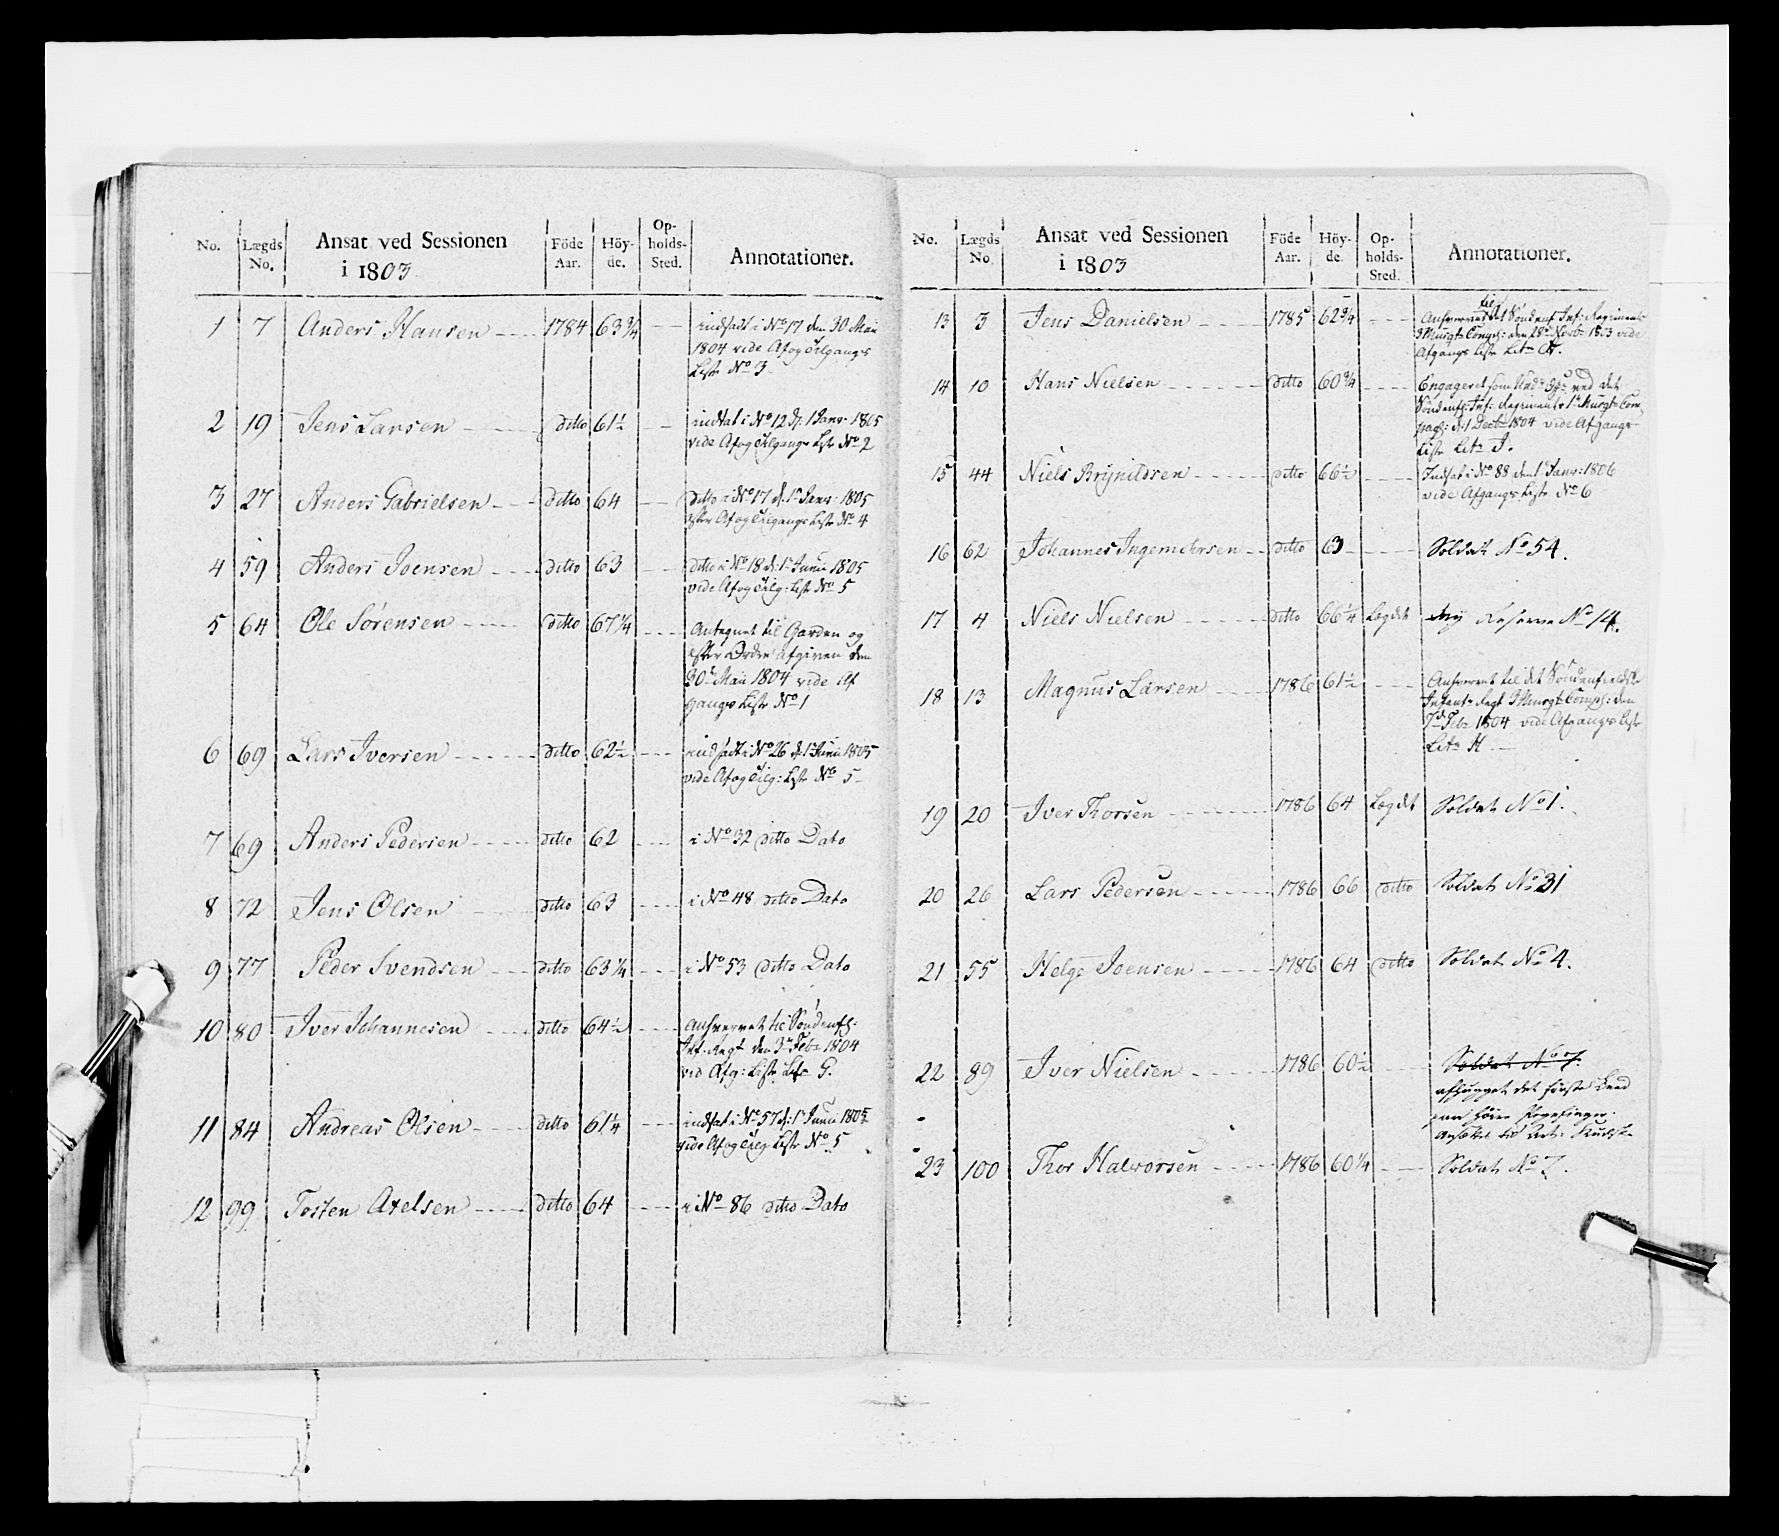 No. Lægds No. Ansat ved Sessionen i 1803 Föde Aar. Höy-de. Op-holds-Sted. Annotationer.
1 7 Anders Hansen 1784 63 3/4 indsadt i No 17 den 30 Mai
1804 vide Af og Tilgangs
Liste No 3
2 19 Jens Larsen ditto 61 1/2 indsat i No 12 d: 1 Janr 1805
vide Af og Tilgangs Liste No 2
3 27 Anders Gabrielsen ditto 64 ditto i No 17 d. 1 Janr: 1805
efter Af og Tilgangs Liste No 4
4 59 Anders Joensen ditto 63 ditto i No 18 d: 1 Junii 1805
vide Af og Tilg: Liste No 5
5 64 Ole Sörensen ditto 67 1/4 Antegnet til Garden og
efter Ordre afgiven den
30 Mai 1804 vide Af
gangs Liste No 1
6 69 Lars Iversen ditto 62 1/2 indsadt i No 26 d: 1 Junii 1805
vide Af og Tilg: Liste No 5
7 69 Anders Pedersen ditto 62 i No 32 ditto Dato
8 72 Jens Olsen ditto 63 i No 48 ditto Dato
9 77 Peder Svendsen ditto 63 1/4 i No 53 ditto Dato
10 80 Iver Johannesen ditto 64 1/2 Anhvervet til Söndenf:
Inf. Regt den 3 Febr 1804
vid Afg: Liste Litr G.
11 84 Andreas Olsen ditto 61 1/4 indsat i No 57 d: 1 Junii 1805
vide Af og Tilg Liste No 5
12 99 Tosten Axelsen ditto 64 i No 86 ditto Dato
No. Lægds No Ansat ved Sessionen i 1803 Föde Aar. Höy-de. Op-holds-Sted. Annotationer.
13 3 Jens Danielsen 1785 62 3/4 Anhvervet til det Söndenf Inf: Regiments
3 Musqt Comp: den 28 Novbr 1803 vide
Afgangs Liste Litr A.
14 10 Hans Nielsen ditto 60 3/4 Engageret som ved det
Söndenf: Inf: Regiments 1 Musqt Com
pag: d: 1 Decbr 1804 vide Afgangs
Liste Litr J.
15 44 Niels Brynildsen ditto 66 1/2 Indsat i No 88 den 1 Janr: 1806
vide Afgangs Liste No 6
16 62 Johannes Ingemdersen ditto 63 Soldat No 54.
17 4 Niels Nielsen ditto 66 1/4 Legdet Reserve No 14.
18 13 Magnus Larsen 1786 61 1/2 Anhvervet til det Söndenfieldske
Infant: Regt 3 Musqt Comp: den
7 Febr 1804 vide Afgangs Liste
Litr H
19 20 Iver Thorsen 1786 64 Legdet Soldat No 1.
20 26 Lars Pedersen 1786 66 ditto Soldat No 31
21 55 Helge Joensen 1786 64 ditto Soldat No 4.
22 89 Iver Nielsen 1786 60 1/2 Soldat No 7.
afhugget det förste Leed
paa höire Pegefinger.
23 100 Thor Halvorsen 1786 60 1/4 Soldat No 7.